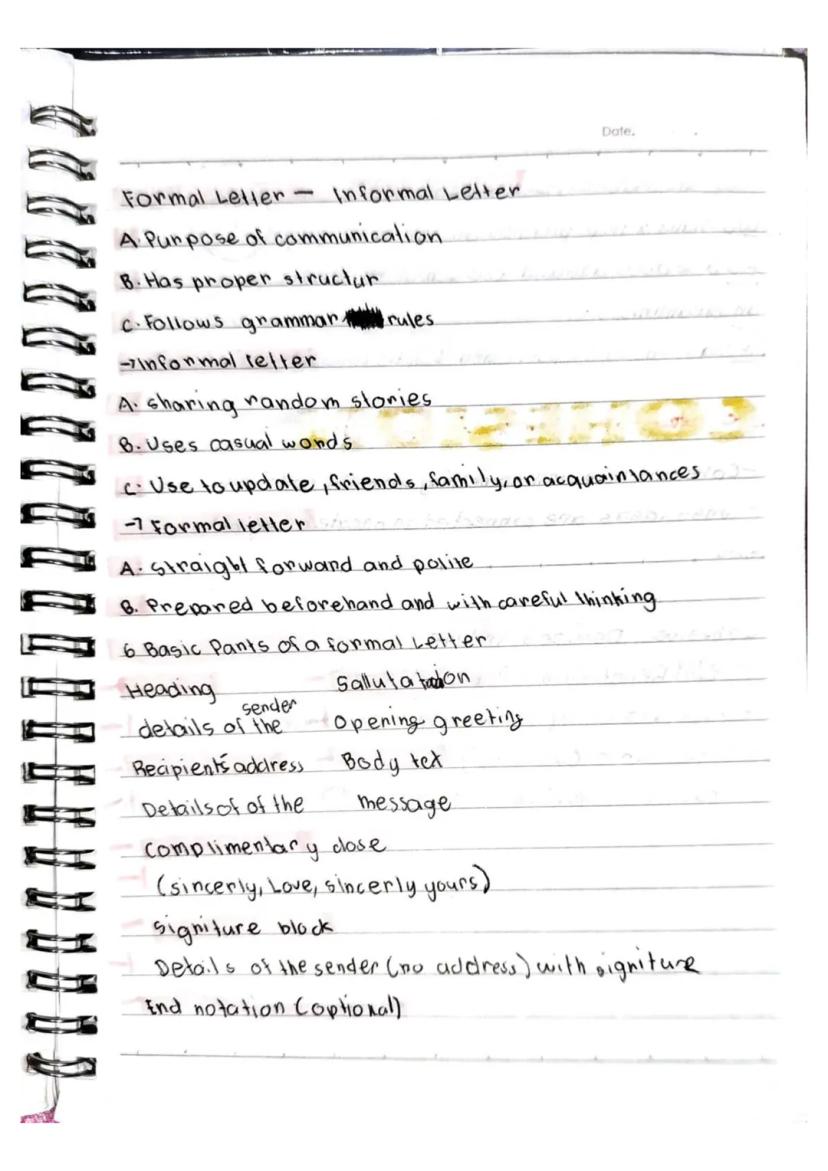 Date.
Formal Letter — Informal Letter
A. Purpose of communication
B. Has proper structur
C. Follows grammar rules
→Informal letter
A. sharing random stories
B. Uses casual words
C. Use to update, friends, family, or acquaintances
→ Formal letter
A. straight forward and polite
B. Prepared beforehand and with careful thinking
6 Basic Parts of a formal Letter
Heading Sallutation
details of the sender opening greeting
Recipients address Body tet
Details of of the message
complimentary close
(sincerly, Love, sincerly yours)
signiture block
Details of the sender (no address) with signiture
End notation (optional)